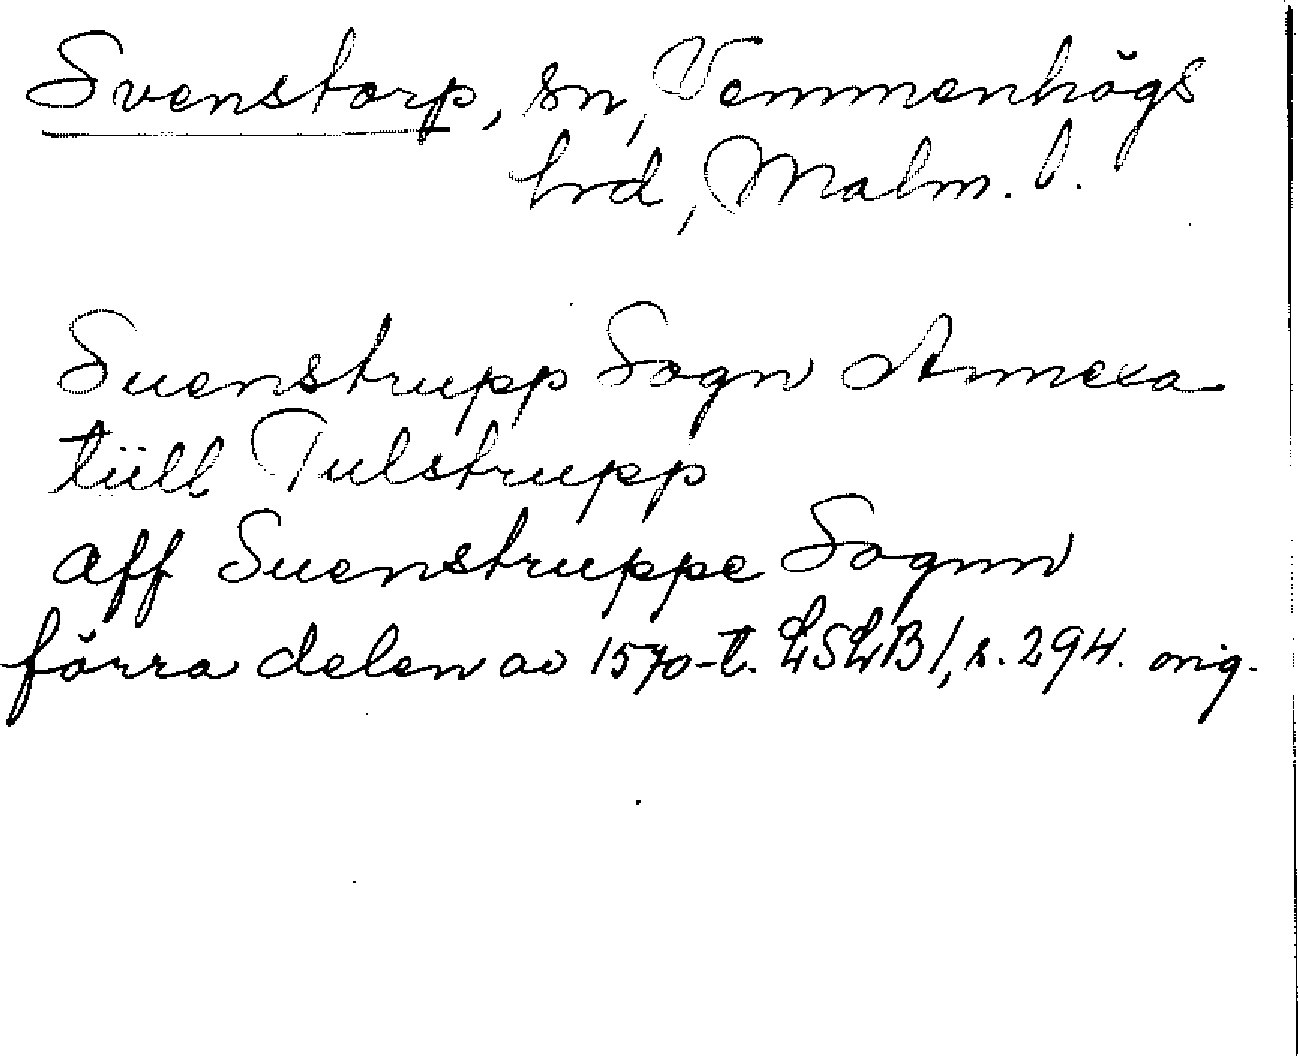 Svenstorp, sn, Vemmenhögs
hrd, Malm. l.
Suenstrupp Sogn Annexa
tiill Tulstrupp
aff Suenstruppe Sognn
förra delen av 1570-t. LSLB 1, s. 294. orig.